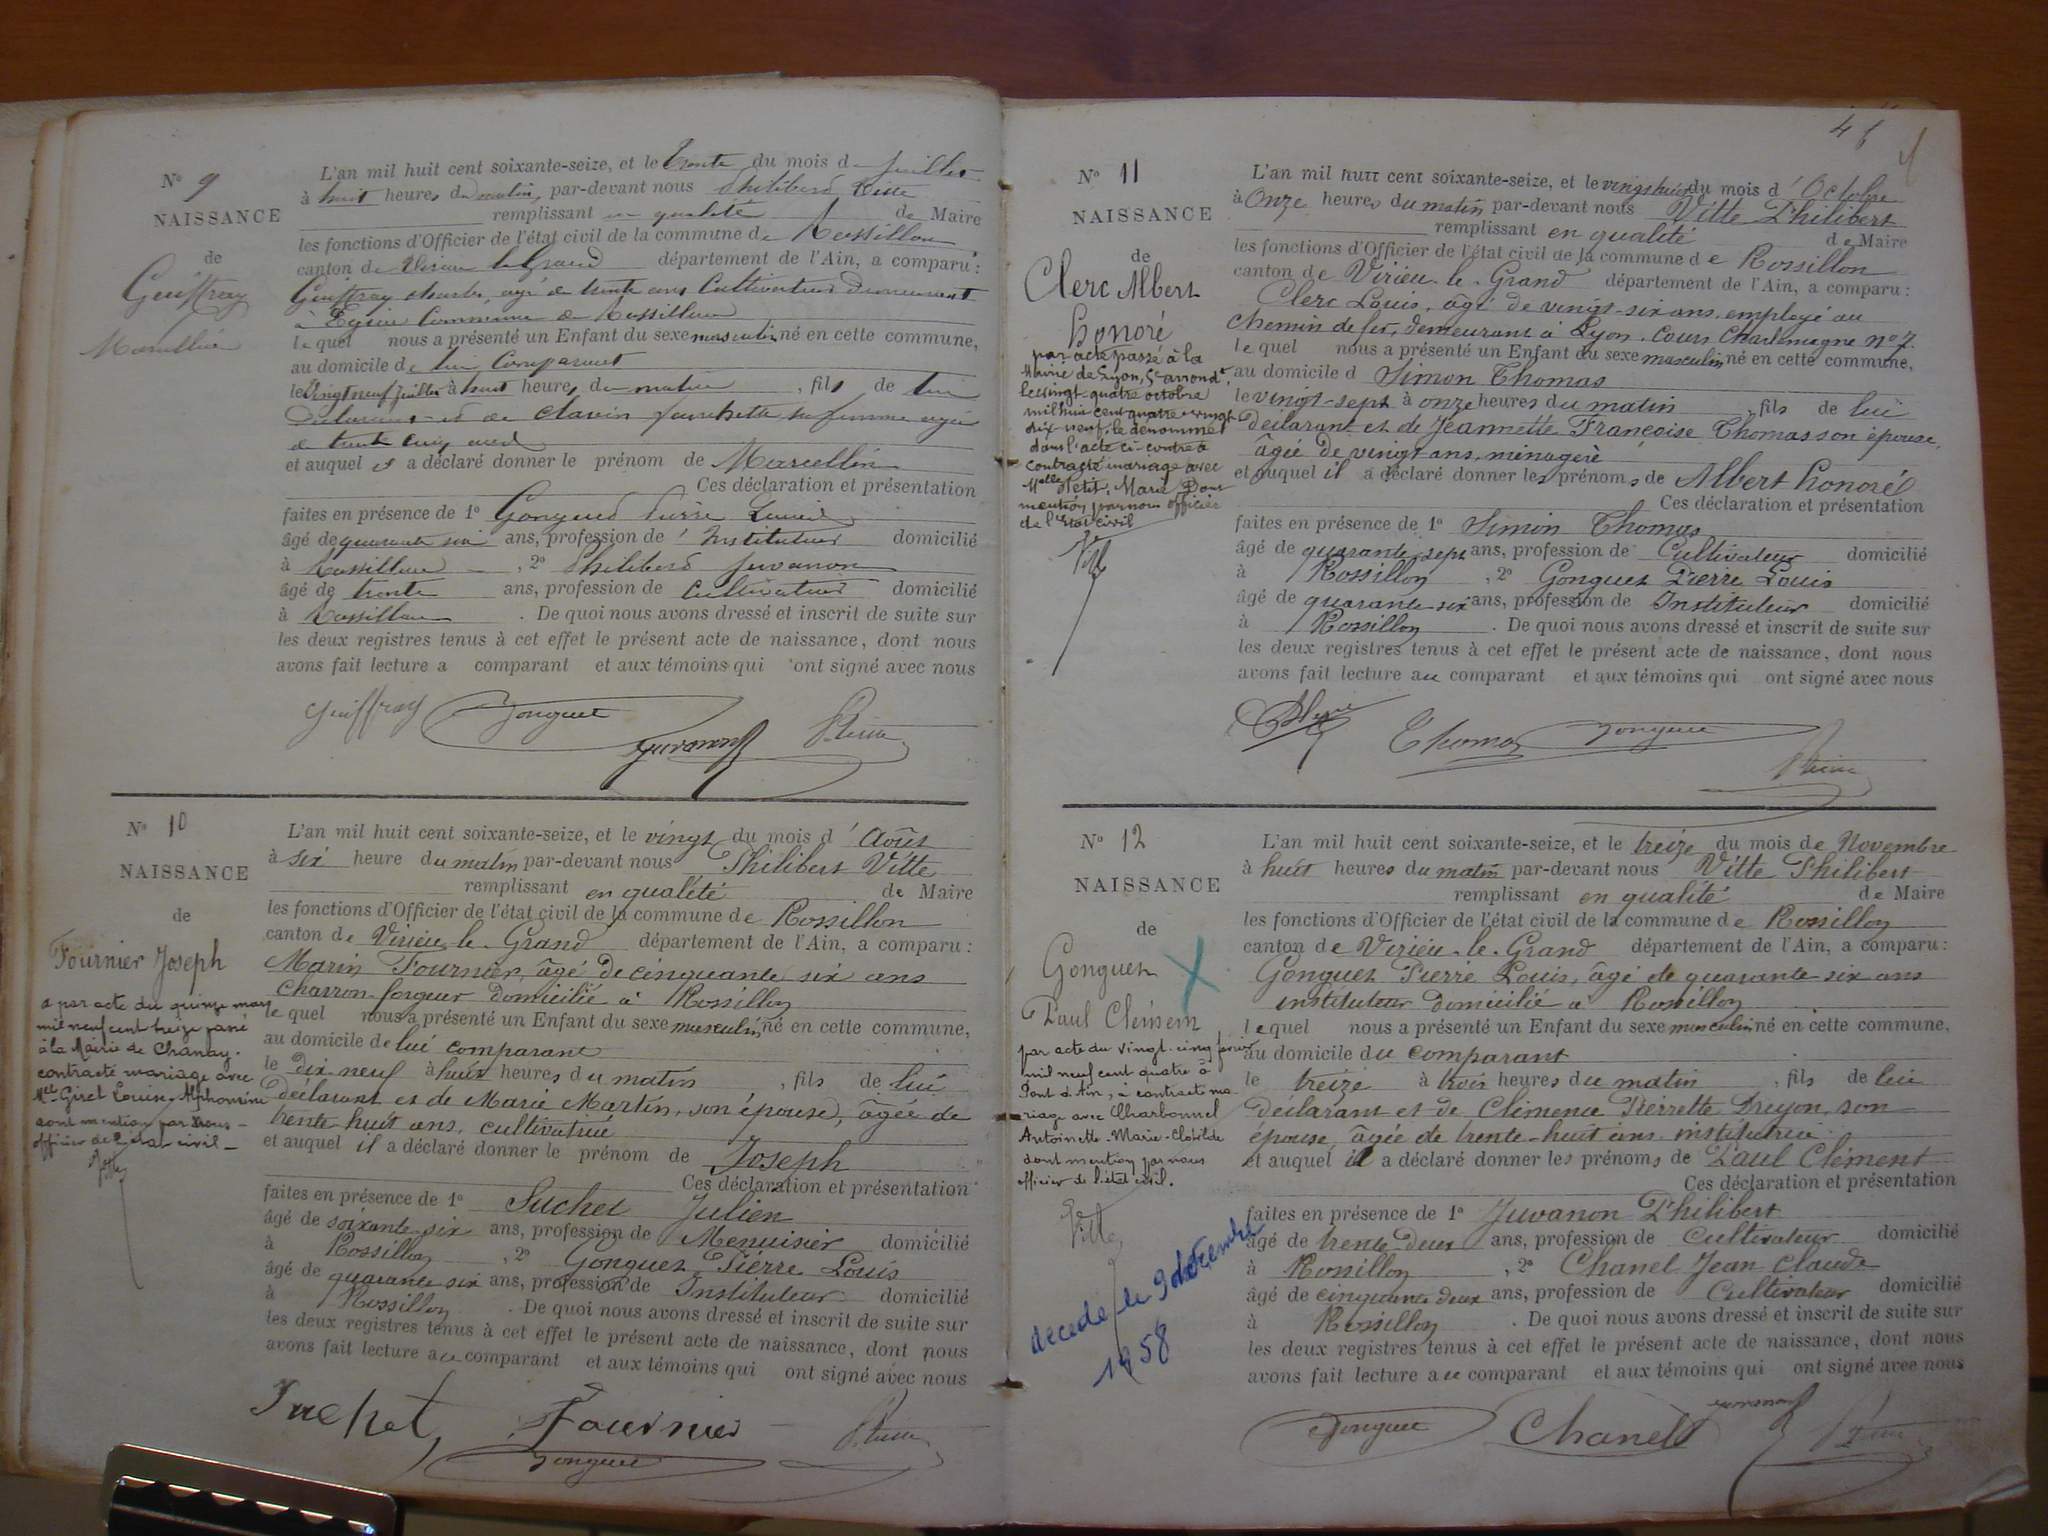 N° 9
NAISSANCE
de
Geuffray
Marcellin
L'an mil huit cent soixante-seize, et le trente du mois d juillet
à huit heures du matin, par-devant nous Philiberd Vitte
remplissant en qualité de Maire
les fonctions d'Officier de l'état civil de la commune de Rossillon
canton de Virieu le Grand département de l'Ain, a comparu :
Geuffray Charles, agé de trente ans Cultivateur demeurant
à Commune de Rossillon
lequel nous a présenté un Enfant du sexe masculin né en cette commune,
au domicile de lui Comparant
le vingt neuf juillet à huit heures du matin, fils de lui
Déclarant et de Clavin sa femme agée
de trente cinq ans
et auquel il a déclaré donner le prénom de Marcellin
Ces déclaration et présentation
faites en présence de 1° Gonguet Pierre Louis
âgé de quarante six ans, profession de Instituteur domicilié
à Rossillon, 2° Philiberd Juvanon
âgé de trente ans, profession de cultivateur domicilié
à Rossillon. De quoi nous avons dressé et inscrit de suite sur
les deux registres tenus à cet effet le présent acte de naissance, dont nous
avons fait lecture a comparant et aux témoins qui ont signé avec nous
Geuffray Gonguet
Juvanon
N° 10
NAISSANCE
de
Fournier Joseph
a par acte du quinze mars
mil neuf cent treize passé
à la Mairie de Chanay.
contracté mariage avec
Mlle Girel Louise Alphonsine
dont mention par nous
officier de l'état civil
L'an mil huit cent soixante-seize, et le vingt du mois d'Août
à six heure du matin par-devant nous Philibert Vitte
remplissant en qualité de Maire
les fonctions d'Officier de l'état civil de la commune de Rossillon
canton de Virieu le Grand département de l'Ain, a comparu :
Marin Fournier, âgé de cinquante six ans
charron-forgeur domicilié à Rossillon
lequel nous a présenté un Enfant du sexe masculin, né en cette commune,
au domicile de lui comparant
le dix neuf à huit heures du matin, fils de lui
déclarant et de Marie Martin, son épouse, âgée de
trente huit ans, cultivatrice
et auquel il a déclaré donner le prénom de Joseph
Ces déclaration et présentation
faites en présence de 1° Suchet Julien
âgé de soixante six ans, profession de Menuisier domicilié
à Rossillon, 2° Gonguet Pierre Louis
âgé de quarante six ans, profession de Instituteur domicilié
à Rossillon. De quoi nous avons dressé et inscrit de suite sur
les deux registres tenus à cet effet le présent acte de naissance, dont nous
avons fait lecture au comparant et aux témoins qui ont signé avec nous
Suchet Fournier
Gonguet
N° 11
NAISSANCE
de
Clerc Albert
honoré
par acte passé à la
Mairie de Lyon, 5e arrondt,
le vingt-quatre octobre
mil huit cent quatre vingt
dix neuf, le dénommé
dans l'acte ci-contre a
contracté mariage avec
Melle Petit, Marie Dont
mention par nous officier
de l'état civil
L'an mil huit cent soixante-seize, et le vingt huit du mois d'Octobre
à Onze heures du matin par-devant nous Vitte Philibert
remplissant en qualité de Maire
les fonctions d'Officier de l'état civil de la commune de Rossillon
canton de Virieu-le-Grand département de l'Ain, a comparu :
Clerc Louis, âgé de vingt-six ans, employé au
chemin de fer, demeurant à Lyon, Cours Charlemagne n° 7.
lequel nous a présenté un Enfant du sexe masculin né en cette commune,
au domicile d Simon Thomas
le vingt-sept à onze heures du matin, fils de lui
déclarant et de Jeannette Françoise Thomas son épouse,
âgée de vingt ans, ménagère
et auquel il a déclaré donner les prénoms de Albert honoré
Ces déclaration et présentation
faites en présence de 1° Simon Thomas
âgé de quarante sept ans, profession de Cultivateur domicilié
à Rossillon, 2° Gonguet Pierre Louis
âgé de quarante six ans, profession de Instituteur domicilié
à Rossillon. De quoi nous avons dressé et inscrit de suite sur
les deux registres tenus à cet effet le présent acte de naissance, dont nous
avons fait lecture au comparant et aux témoins qui ont signé avec nous
Thomas Gonguet
N° 12
NAISSANCE
de
Gonguet
Paul Clément
par acte du vingt-cinq février
mil neuf cent quatre à
Pont d'Ain, a contracté ma-
riage avec Charbonnel
Antoinette-Marie-Clotilde
dont mention par nous
officier de l'état civil.
Vitte
décédé le 9 décembre
1958
L'an mil huit cent soixante-seize, et le treize du mois de Novembre
à huit heures du matin par-devant nous Vitte Philibert
remplissant en qualité de Maire
les fonctions d'Officier de l'état civil de la commune de Rossillon
canton de Virieu-le-Grand département de l'Ain, a comparu :
Gonguet Pierre Louis, âgé de quarante six ans
instituteur domicilié à Rossillon
lequel nous a présenté un Enfant du sexe masculin né en cette commune,
au domicile du comparant
le treize à trois heures du matin, fils de lui
déclarant et de Clémence Pierrette Dreyon, son
épouse, âgée de trente-huit ans, institutrice
et auquel il a déclaré donner les prénoms de Paul Clément
Ces déclaration et présentation
faites en présence de 1° Juvanon Philibert
âgé de trente deux ans, profession de Cultivateur domicilié
à Rossillon, 2° Chanel Jean Claude
âgé de cinquante deux ans, profession de Cultivateur domicilié
à Rossillon. De quoi nous avons dressé et inscrit de suite sur
les deux registres tenus à cet effet le présent acte de naissance, dont nous
avons fait lecture au comparant et aux témoins qui ont signé avec nous
Gonguet Chanel Juvanon